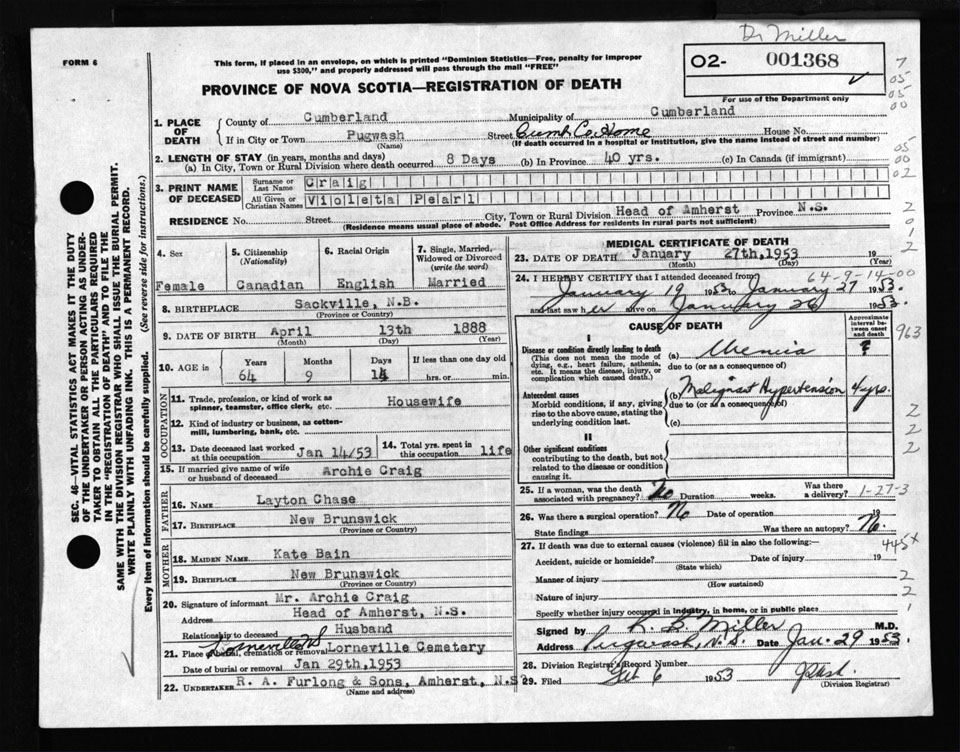 Dr Miller
FORM 6
This form, if placed in an envelope, on which is printed "Dominion Statistics—Free, penalty for improper
use $300," and properly addressed will pass through the mail "FREE"
O2- 001368
For use of the Department only
PROVINCE OF NOVA SCOTIA—REGISTRATION OF DEATH
7
05
05
00
05
00
02
2
0
1
2
SEC. 46—VITAL STATISTICS ACT MAKES IT THE DUTY
OF THE UNDERTAKER OR PERSON ACTING AS UNDER-
TAKER TO OBTAIN ALL THE PARTICULARS REQUIRED
IN THE "REGISTRATION OF DEATH" AND TO FILE THE
SAME WITH THE DIVISION REGISTRAR WHO SHALL ISSUE THE BURIAL PERMIT.
WRITE PLAINLY WITH UNFADING INK. THIS IS A PERMANENT RECORD.
Every item of Information should be carefully supplied. (See reverse side for instructions.)
1. PLACE OF DEATH
County of Cumberland Municipality of Cumberland
If in City or Town Pugwash Street Cumb Co. Home House No.
(Name) (If death occurred in a hospital or institution, give the name instead of street and number)
2. LENGTH OF STAY (in years, months and days)
(a) In City, Town or Rural Division where death occurred 8 Days (b) In Province 40 yrs. (c) In Canada (if immigrant)
3. PRINT NAME OF DECEASED
Surname or Last Name Craig
All Given or Christian Names Violeta Pearl
RESIDENCE No. Street City, Town or Rural Division Head of Amherst Province N.S.
(Residence means usual place of abode. Post Office Address for residents in rural parts not sufficient)
4. Sex Female
5. Citizenship (Nationality) Canadian
6. Racial Origin English
7. Single, Married, Widowed or Divorced (write the word) Married
8. BIRTHPLACE Sackville, N.B.
(Province or Country)
9. DATE OF BIRTH April 13th 1888
(Month) (Day) (Year)
10. AGE in Years Months Days If less than one day old
64 9 14 hrs. or min.
OCCUPATION
11. Trade, profession, or kind of work as spinner, teamster, office clerk, etc. Housewife
12. Kind of industry or business, as cotton-mill, lumbering, bank, etc.
13. Date deceased last worked at this occupation Jan 14/53
14. Total yrs. spent in this occupation life
15. If married give name of wife or husband of deceased Archie Craig
FATHER
16. NAME Layton Chase
17. BIRTHPLACE New Brunswick
(Province or Country)
MOTHER
18. MAIDEN NAME Kate Bain
19. BIRTHPLACE New Brunswick
(Province or Country)
20. Signature of informant Mr. Archie Craig
Address Head of Amherst, N.S.
Relationship to deceased Husband
21. Place of burial, cremation or removal Lorneville NS Lorneville Cemetery
Date of burial or removal Jan 29th, 1953
22. UNDERTAKER R. A. Furlong & Sons, Amherst, N.S
(Name and address)
MEDICAL CERTIFICATE OF DEATH
23. DATE OF DEATH January 27th, 1953
(Month) (Day) (Year)
64-9-14-00
24. I HEREBY CERTIFY that I attended deceased from
January 19 1953 to January 27 1953.
and last saw her alive on January 26 1953.
CAUSE OF DEATH
Approximate interval between onset and death
963
I
Disease or condition directly leading to death
(This does not mean the mode of dying, e.g., heart failure, asthenia, etc. It means the disease, injury, or complication which caused death.)
(a) Uremia ?
due to (or as a consequence of)
Antecedent causes
Morbid conditions, if any, giving rise to the above cause, stating the underlying condition last.
(b) Malignant Hypertension 4 yrs.
due to (or as a consequence of)
(c)
II
Other significant conditions
contributing to the death, but not related to the disease or condition causing it.
2
2
2
25. If a woman, was the death associated with pregnancy? No Duration weeks. Was there a delivery? 1-27-3
26. Was there a surgical operation? No Date of operation 19
State findings Was there an autopsy? No.
27. If death was due to external causes (violence) fill in also the following:— 445x
Accident, suicide or homicide? Date of injury 19
(State which)
Manner of injury 2
(How sustained)
Nature of injury 2
Specify whether injury occurred in industry, in home, or in public place 1
Signed by R. B. Miller M.D.
Address Pugwash, N.S. Date Jan. 29 1953.
28. Division Registrar's Record Number
29. Filed Feb 6 1953
(Division Registrar)